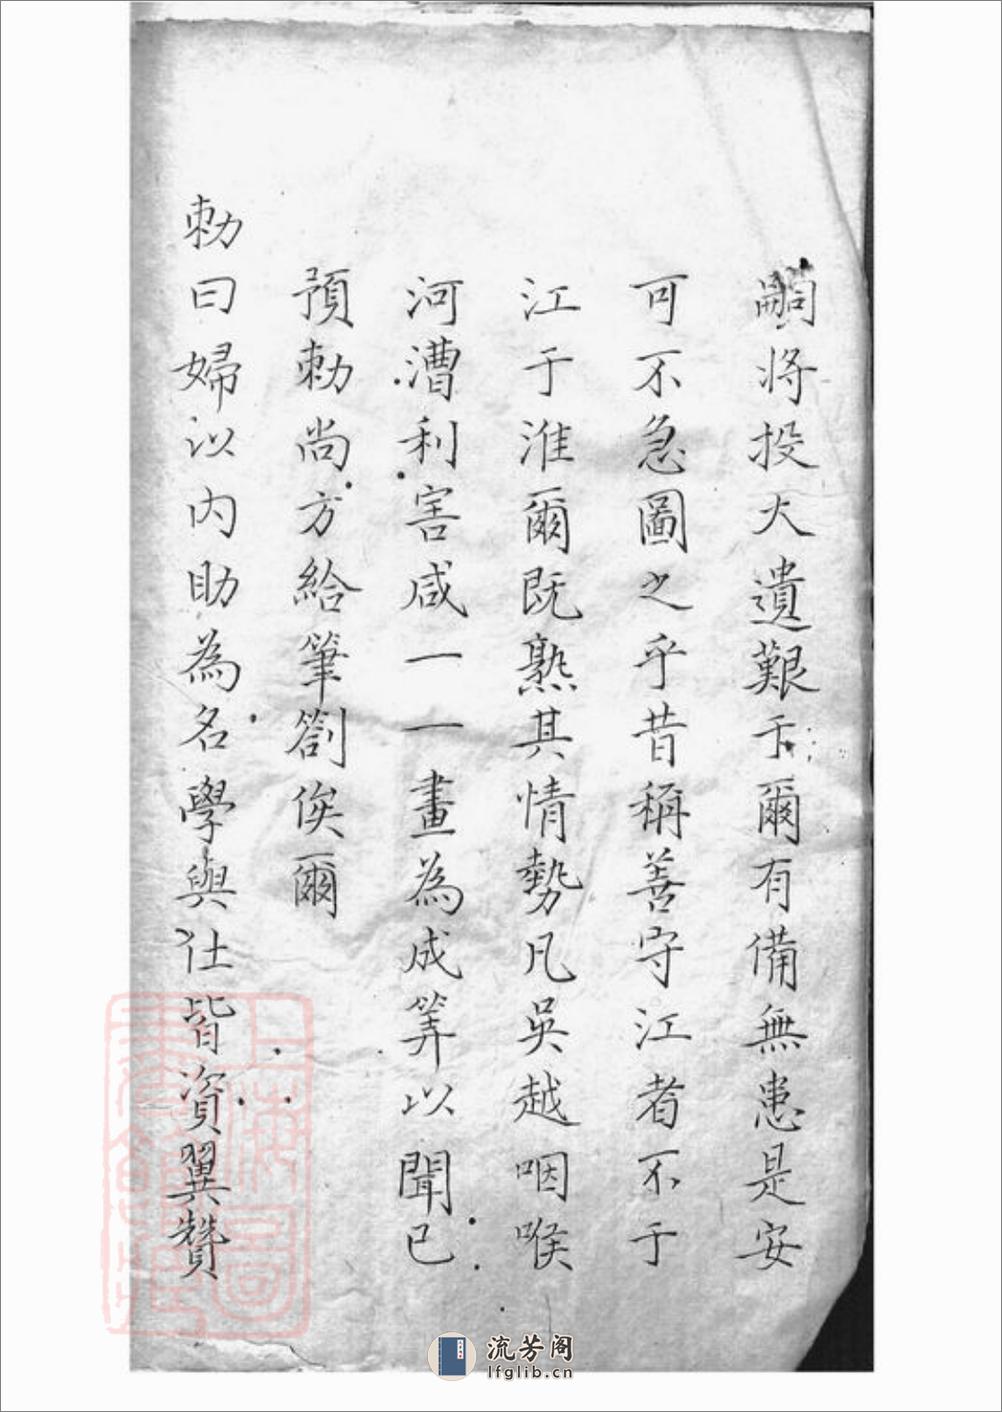 嗣將投大遺艱于爾有備無患是安
可不急圖之乎昔稱善守江者不于
江于淮爾既熟其情勢凡吳越咽喉
河漕利害咸一一畫為成筭以聞已
預勅尚方給筆劄俟爾
勅曰婦以內助為名學與仕皆資翼贊
上海圖書館藏
流芳阁
lfglib.cn